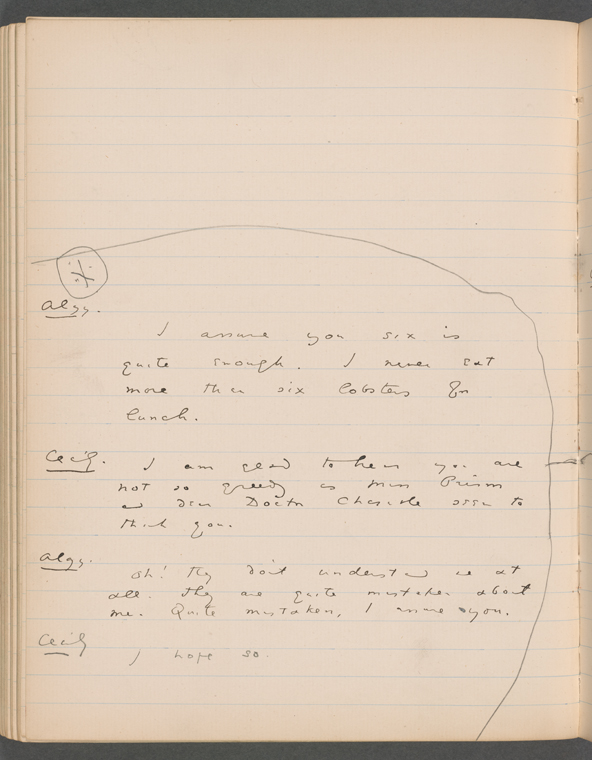 Algy.
I assure you six is
quite enough. I never eat
more than six lobsters for
lunch.
Cecily. I am glad to hear you are
not so greedy as Miss Prism
and dear Doctor Chasuble seem to
think you.
Algy. Oh! They don't understand me at
all. They are quite mistaken about
me. Quite mistaken, I assure you.
Cecily
I hope so.